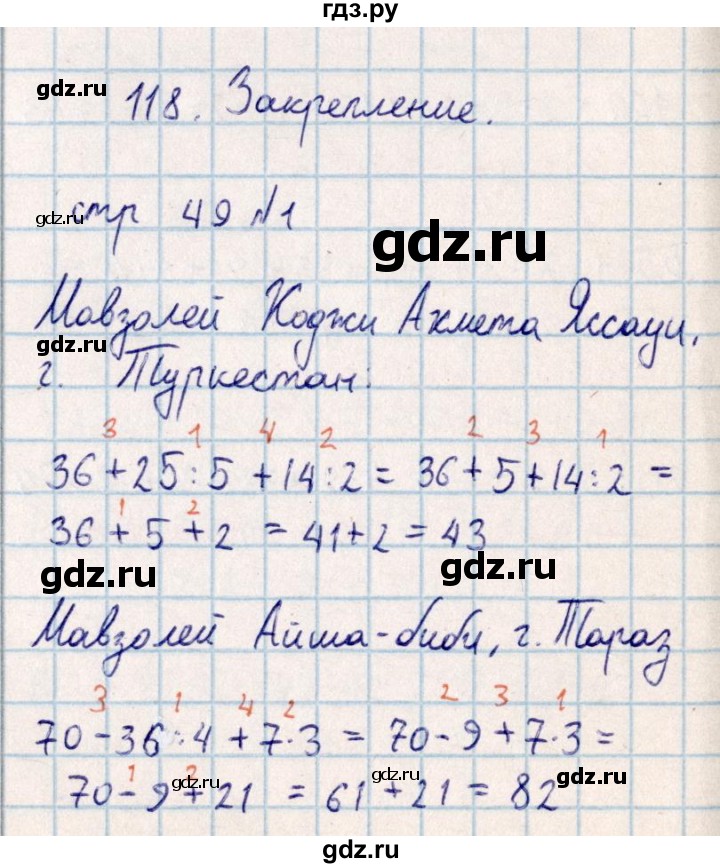 гдз.ру
gdz.ru
118. Закрепление.
gdz.ru
gdz.ru
стр 49 №1
gdz.ru
Мавзолей Ходжи Ахмета Яссауи,
gdz.ru
г. Туркестан:
gdz.ru
3 1 4 2 2 3 1
36 + 25 : 5 + 14 : 2 = 36 + 5 + 14 : 2 =
1 2
36 + 5 + 2 = 41 + 2 = 43
gdz.ru gdz.ru
Мавзолей Айша-биби, г. Тараз
3 1 4 2 2 3 1
70 - 36 : 4 + 7 · 3 = 70 - 9 + 7 · 3 =
1 2
gdz.ru gdz.ru gdz.ru
70 - 9 + 21 = 61 + 21 = 82
гдз.ру